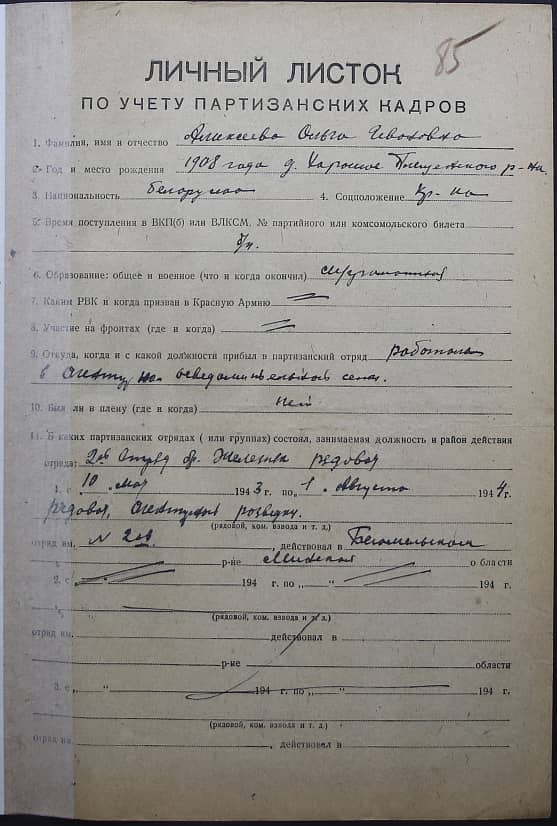 85
ЛИЧНЫЙ ЛИСТОК
ПО УЧЕТУ ПАРТИЗАНСКИХ КАДРОВ
1. Фамилия, имя и отчество Алексеева Ольга Ивановна
2. Год и место рождения 1908 года д. Хорошое Плещенского р-на
3. Национальность белоруска 4. Соцположение кр-ка
5. Время поступления в ВКП(б) или ВЛКСМ, № партийного или комсомольского билета
б/п.
6. Образование: общее и военное (что и когда окончил)
7. Каким РВК и когда призван в Красную Армию
8. Участие на фронтах (где и когда)
9. Откуда, когда и с какой должности прибыл в партизанский отряд работала
в осведомительской сети.
10. Был ли в плену (где и когда) нет
11. В каких партизанских отрядах ( или группах) состоял, занимаемая должность и район действия
отряда: 2ой Отряд бр. Железняк рядовая
1. с 10 мая 1943 г. по 1 августа 1944 г.
рядовая, разведки.
(рядовой, ком. взвода и т. д.)
отряд им. № 2ой действовал в Бегомельском
р-не Минской области
2. с „ “ 194 г. по „ “ 194 г.
(рядовой, ком. взвода и т. д.)
отряд им. действовал в
р-не области
3. с „ “ 194 г. по „ “ 194 г.
(рядовой, ком. взвода и т. д.)
отряд им. , действовал в